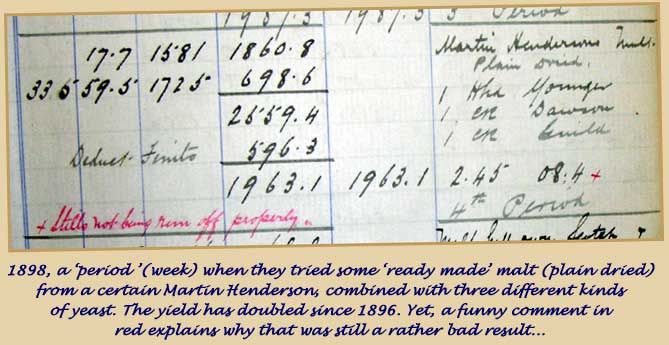 1987.3 1987.3 3 Period
17.7 1581 1860.8 Martin Hendersons Malt.
33.5 59.5 1725 698.6 Plain Dried.
2559.4 1 Hhd Younger
1 CK Dawson
Deduct Feints 596.3 1 CK Guild
1963.1 1963.1 2.45 08.4 +
+ Stills not being run off properly. 4th Period
1898, a ‘period ’(week) when they tried some ‘ready made’ malt (plain dried)
from a certain Martin Henderson, combined with three different kinds
of yeast. The yield has doubled since 1896. Yet, a funny comment in
red explains why that was still a rather bad result...